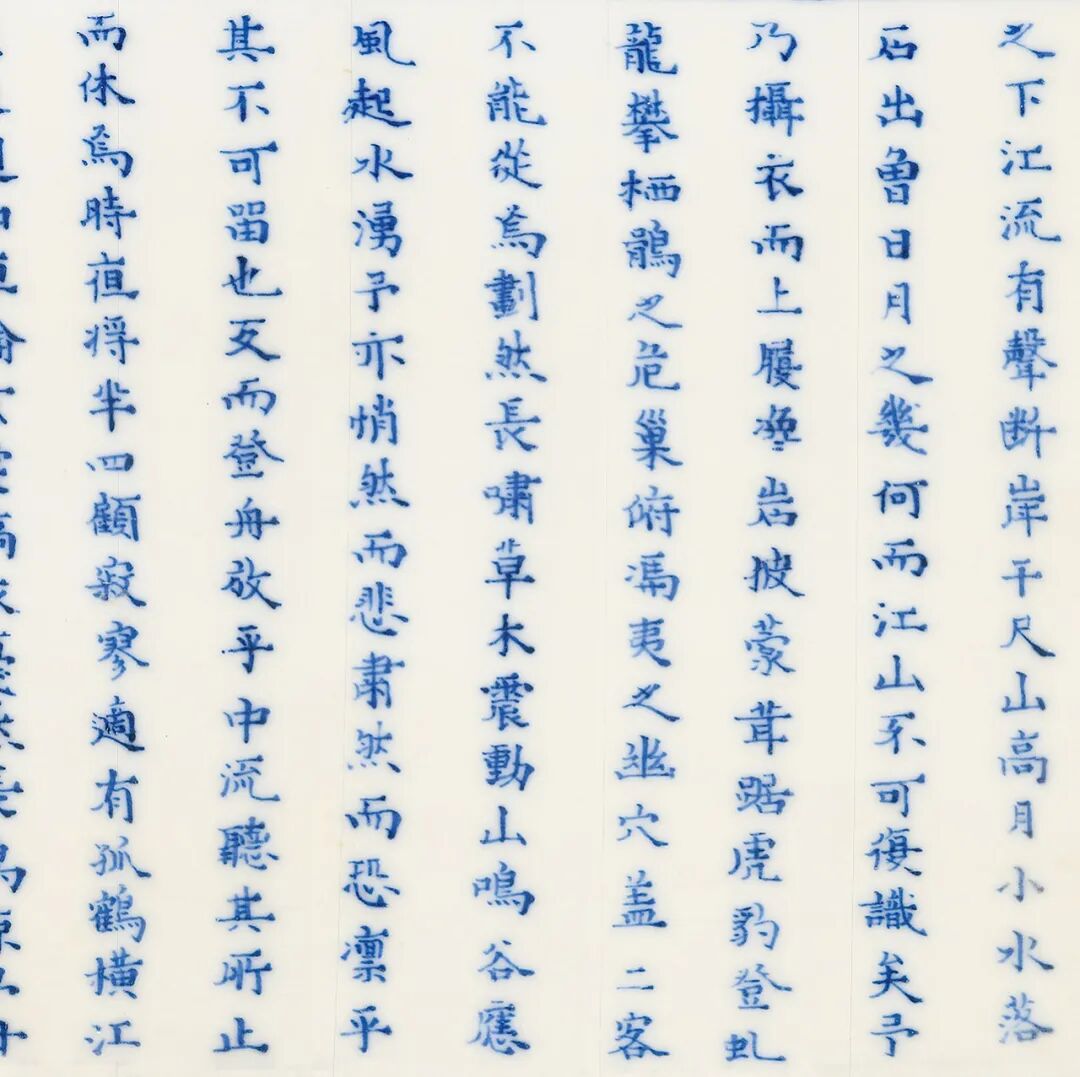 之下江流有聲断岸千尺山高月小水落
石出曾日月之幾何而江山不可復識矣予
乃攝衣而上履巉岩披蒙茸踞虎豹登虬
龍攀栖鶻之危巢俯馮夷之幽穴盖二客
不能從焉劃然長嘯草木震動山鳴谷應
風起水湧予亦悄然而悲肅然而恐凛乎
其不可留也反而登舟放乎中流聽其所止
而休焉時夜將半四顧寂寥適有孤鶴横江